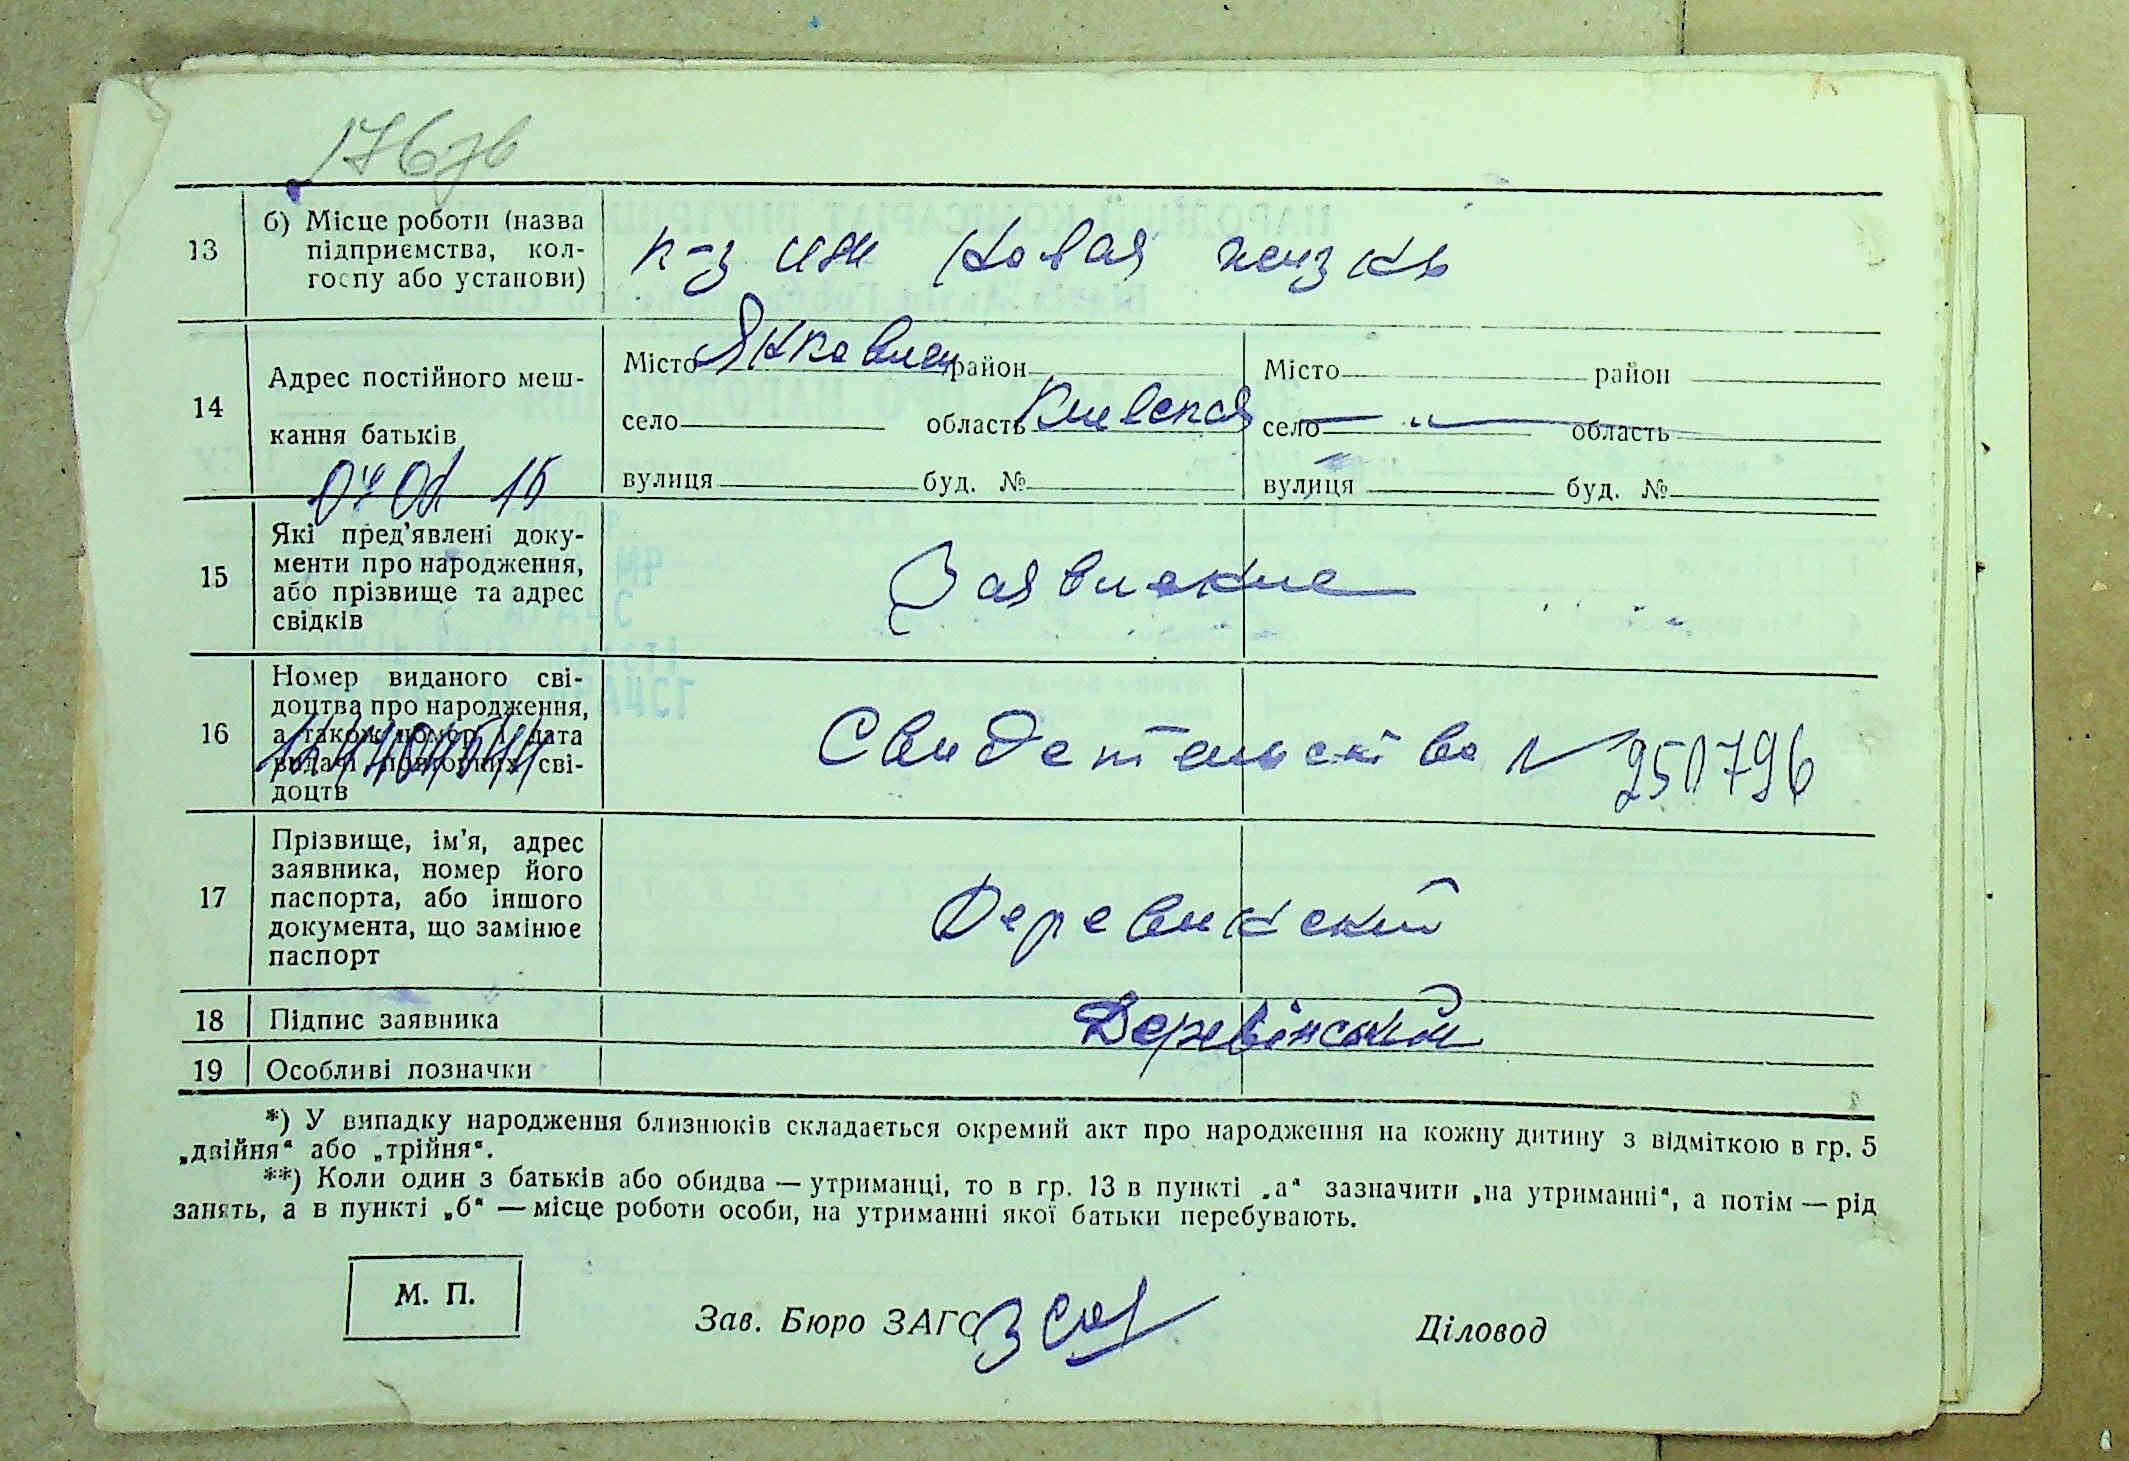 176зв
13
б) Місце роботи (назва
підприємства, кол-
госпу або установи)
к-з им Новая жизнь
14
Адрес постійного меш-
кання батьків
Місто район
село область Киевская
вулиця буд. №
Місто район
село — „ — область
вулиця буд. №
15
Які пред'явлені доку-
менти про народження,
або прізвище та адрес
свідків
Заявление
16
Номер виданого сві-
доцтва про народження,
а також номер і дата
видачі повторних сві-
доцтв
Свидетельство № 950796
17
Прізвище, ім'я, адрес
заявника, номер його
паспорта, або іншого
документа, що замінює
паспорт
Деревинский
18 Підпис заявника
Деревінський
19 Особливі позначки
*) У випадку народження близнюків складається окремий акт про народження на кожну дитину з відміткою в гр. 5
„двійня“ або „трійня“.
**) Коли один з батьків або обидва — утриманці, то в гр. 13 в пункті „а“ зазначити „на утриманні“, а потім — рід
занять, а в пункті „б“ — місце роботи особи, на утриманні якої батьки перебувають.
М. П.
Зав. Бюро ЗАГС
Діловод